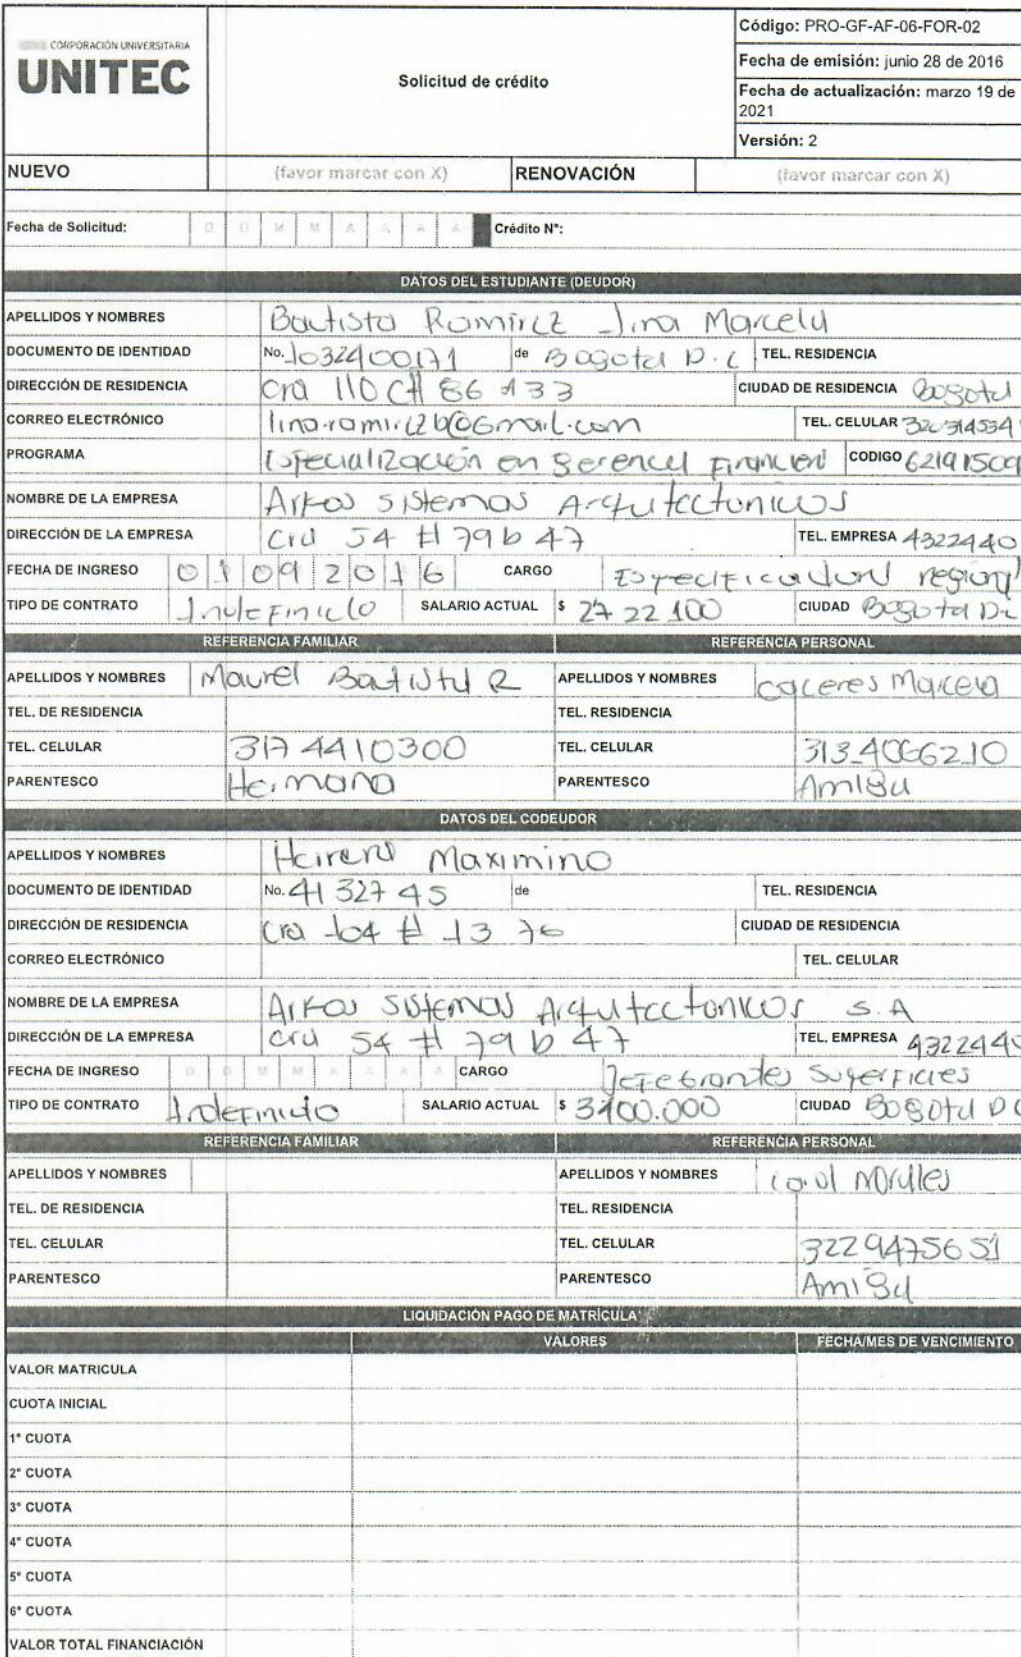 CORPORACIÓN UNIVERSITARIA
UNITEC
Solicitud de crédito
Código: PRO-GF-AF-06-FOR-02
Fecha de emisión: junio 28 de 2016
Fecha de actualización: marzo 19 de 2021
Versión: 2
NUEVO (favor marcar con X) RENOVACIÓN (favor marcar con X)
Fecha de Solicitud: D D M M A A A A Crédito N°:
DATOS DEL ESTUDIANTE (DEUDOR)
APELLIDOS Y NOMBRES Bautista Ramirez Lina Marcela
DOCUMENTO DE IDENTIDAD No. 1032400171 de Bogota D.C TEL. RESIDENCIA
DIRECCIÓN DE RESIDENCIA Cra 110 C # 86 A 33 CIUDAD DE RESIDENCIA Bogota
CORREO ELECTRÓNICO lina.ramirezb@Gmail.com TEL. CELULAR
PROGRAMA Especialización en Gerencia Financiera CODIGO
NOMBRE DE LA EMPRESA Arkos sistemas Arquitectonicos
DIRECCIÓN DE LA EMPRESA Cra 54 # 79 b 47 TEL. EMPRESA 4322440
FECHA DE INGRESO 01092016 CARGO Especificadora regional
TIPO DE CONTRATO Indefinido SALARIO ACTUAL $ 2722100 CIUDAD Bogota Dc
REFERENCIA FAMILIAR REFERENCIA PERSONAL
APELLIDOS Y NOMBRES Bautista R APELLIDOS Y NOMBRES caceres Marcela
TEL. DE RESIDENCIA TEL. RESIDENCIA
TEL. CELULAR 317 4410300 TEL. CELULAR 3134066210
PARENTESCO Hermana PARENTESCO Amiga
DATOS DEL CODEUDOR
APELLIDOS Y NOMBRES Maximino
DOCUMENTO DE IDENTIDAD No. 4132745 de TEL. RESIDENCIA
DIRECCIÓN DE RESIDENCIA Cra 104 # 13 76 CIUDAD DE RESIDENCIA
CORREO ELECTRÓNICO TEL. CELULAR
NOMBRE DE LA EMPRESA Arkos Sistemas Arquitectonicos S.A
DIRECCIÓN DE LA EMPRESA Cra 54 # 79 b 47 TEL. EMPRESA 4322440
FECHA DE INGRESO D D M M A A A A CARGO Jefe Grandes Superficies
TIPO DE CONTRATO Indefinido SALARIO ACTUAL $ 3400.000 CIUDAD Bogota DC
REFERENCIA FAMILIAR REFERENCIA PERSONAL
APELLIDOS Y NOMBRES APELLIDOS Y NOMBRES Carol Morales
TEL. DE RESIDENCIA TEL. RESIDENCIA
TEL. CELULAR TEL. CELULAR 3229475651
PARENTESCO PARENTESCO Amiga
LIQUIDACIÓN PAGO DE MATRÍCULA
VALORES FECHA/MES DE VENCIMIENTO
VALOR MATRICULA
CUOTA INICIAL
1° CUOTA
2° CUOTA
3° CUOTA
4° CUOTA
5° CUOTA
6° CUOTA
VALOR TOTAL FINANCIACIÓN